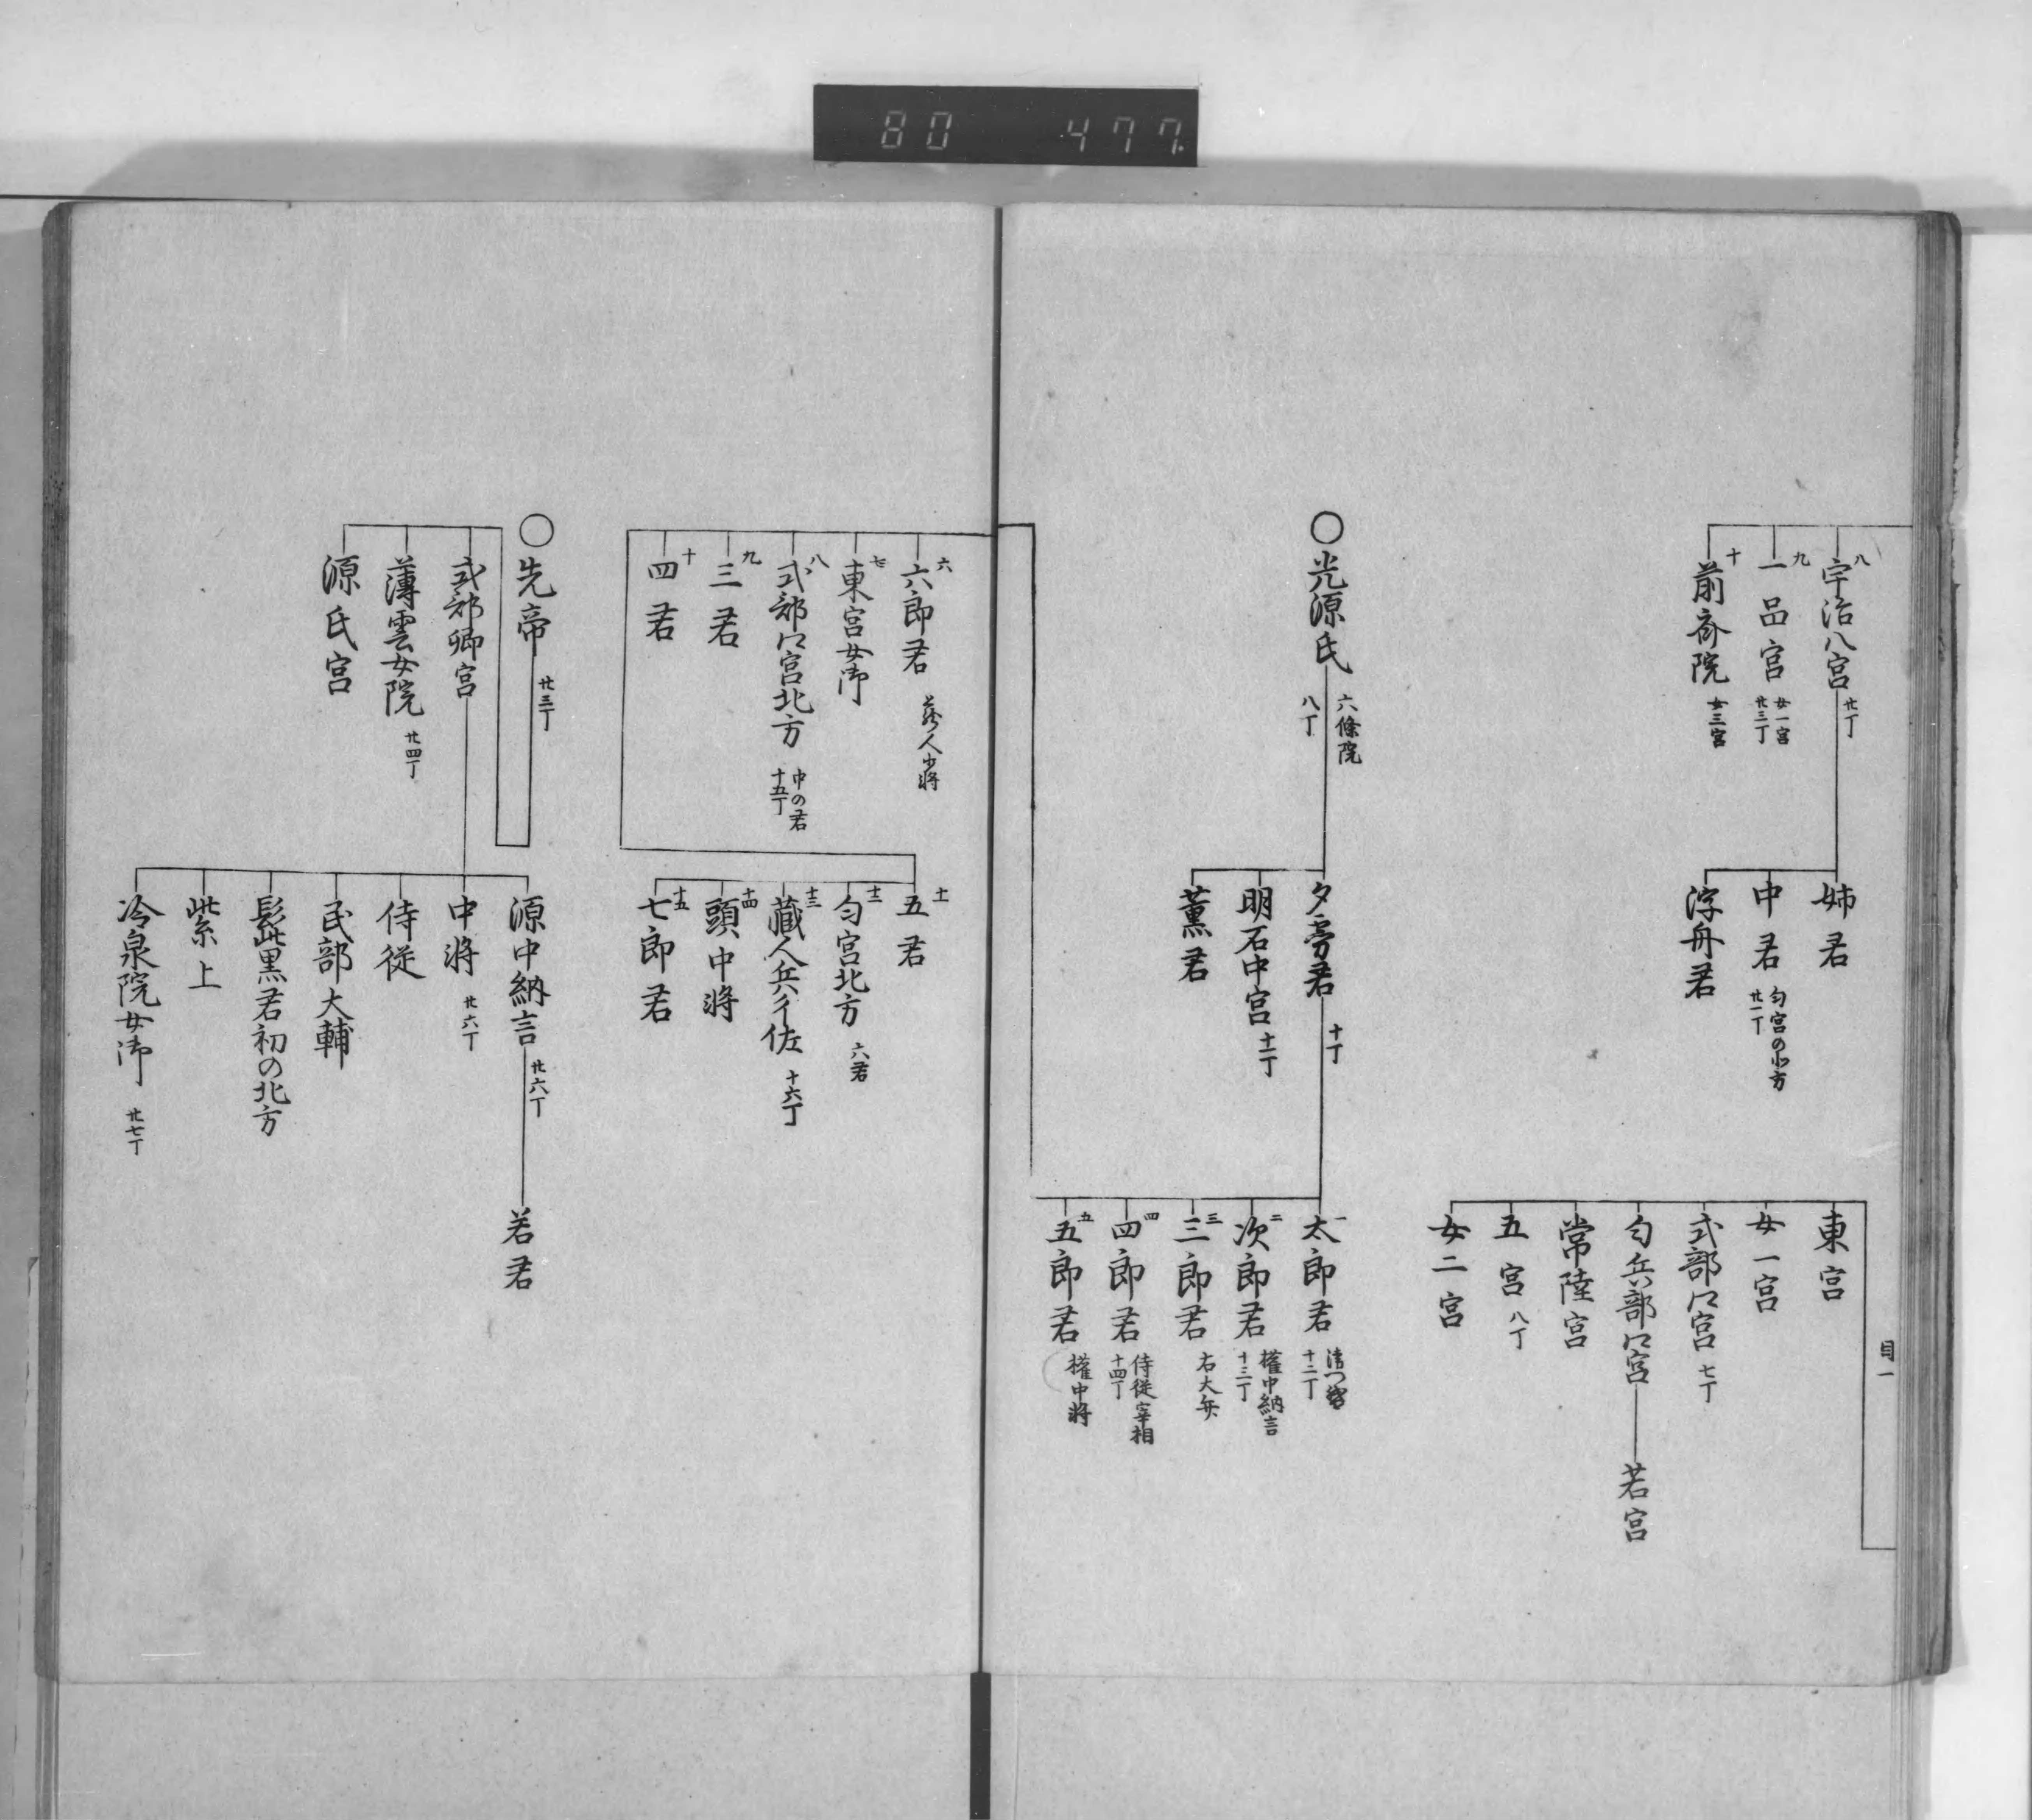 80 477.
八 宇治八宮 廿丁
九 一品宮 女一宮 廿三丁
十 前斎院 女三宮
姉君
中君 匂宮の北方 廿一丁
浮舟君
東宮
女一宮
式部口宮 七丁
匂兵部口宮
若宮
常陸宮
五宮 八丁
女二宮
目一
○光源氏 六條院 八丁
夕霧君 十丁
明石中宮 十一丁
薫君
一 太郎君 十二丁
二 次郎君 權中納言 十三丁
三 三郎君 右大弁
四 四郎君 侍従宰相 十四丁
五 五郎君 權中將
六 六郎君 蔵人少將
七 東宮女御
八 式部口宮北方 中の君 十五丁
九 三君
十 四君
十一 五君
十二 匂宮北方 六君
十三 藏人兵衛佐 十六丁
十四 頭中將
十五 七郎君
○先帝 廿三丁
式部卿宮
薄雲女院 廿四丁
源氏宮
源中納言 廿六丁
若君
中將 廿六丁
侍従
民部大輔
髭黒君初の北方
紫上
冷泉院女御 廿七丁